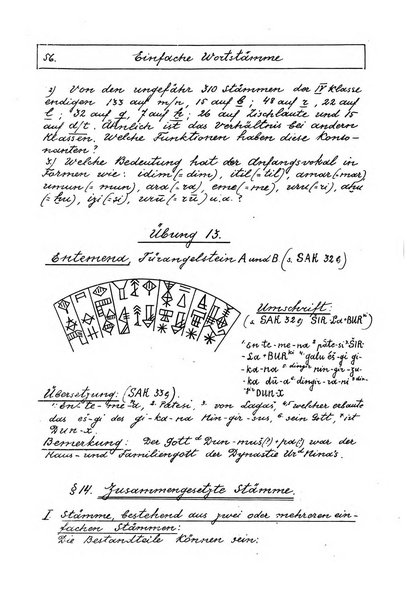 56. Einfache Wortstämme
2) Von den ungefähr 310 Stämmen der IV Klasse
endigen 133 auf m/n, 15 auf b; 48 auf r, 22 auf
l; 32 auf g, 7 auf h; 26 auf Zischlaute und 15
auf d/t. Ähnlich ist das Verhältnis bei andern
Klassen. Welche Funktionen haben diese Konso-
nanten?
3) Welche Bedeutung hat der Anfangsvokal in
Formen wie: idim (= dim), itil (= til), amar (= mar)
umun (= mun), ara (= ra), eme (= me), uru (= ri),
izi (= si), u.a.?
Übung 13.
Entemena, Türangelstein A und B (s. SAK 32g)
Umschrift:
(s. SAK 32g ŠIR-La+BUR ki)
En-te-me-na pate-si ŠIR-
-La+BUR ki galu éš-gi gi-
-ka-na dingir nin-gir-zu-
ka dū-a dingir-ra-ni din-
DUN-X
Übersetzung: (SAK 33g)
En-te-me-na, Patesi, von Lagaš, welcher erbaute
das eš-gi des gi-kana Nin-gir-sus, sein Gott, ist
DUN-X.
Bemerkung: Der Gott Dun- war der
Haus- und Familiengott der Dynastie Ur Ninas.
§ 14. Zusammengesetzte Stämme.
I Stämme, bestehend aus zwei oder mehreren ein-
fachen Stämmen:
Die Bestandteile können sein: